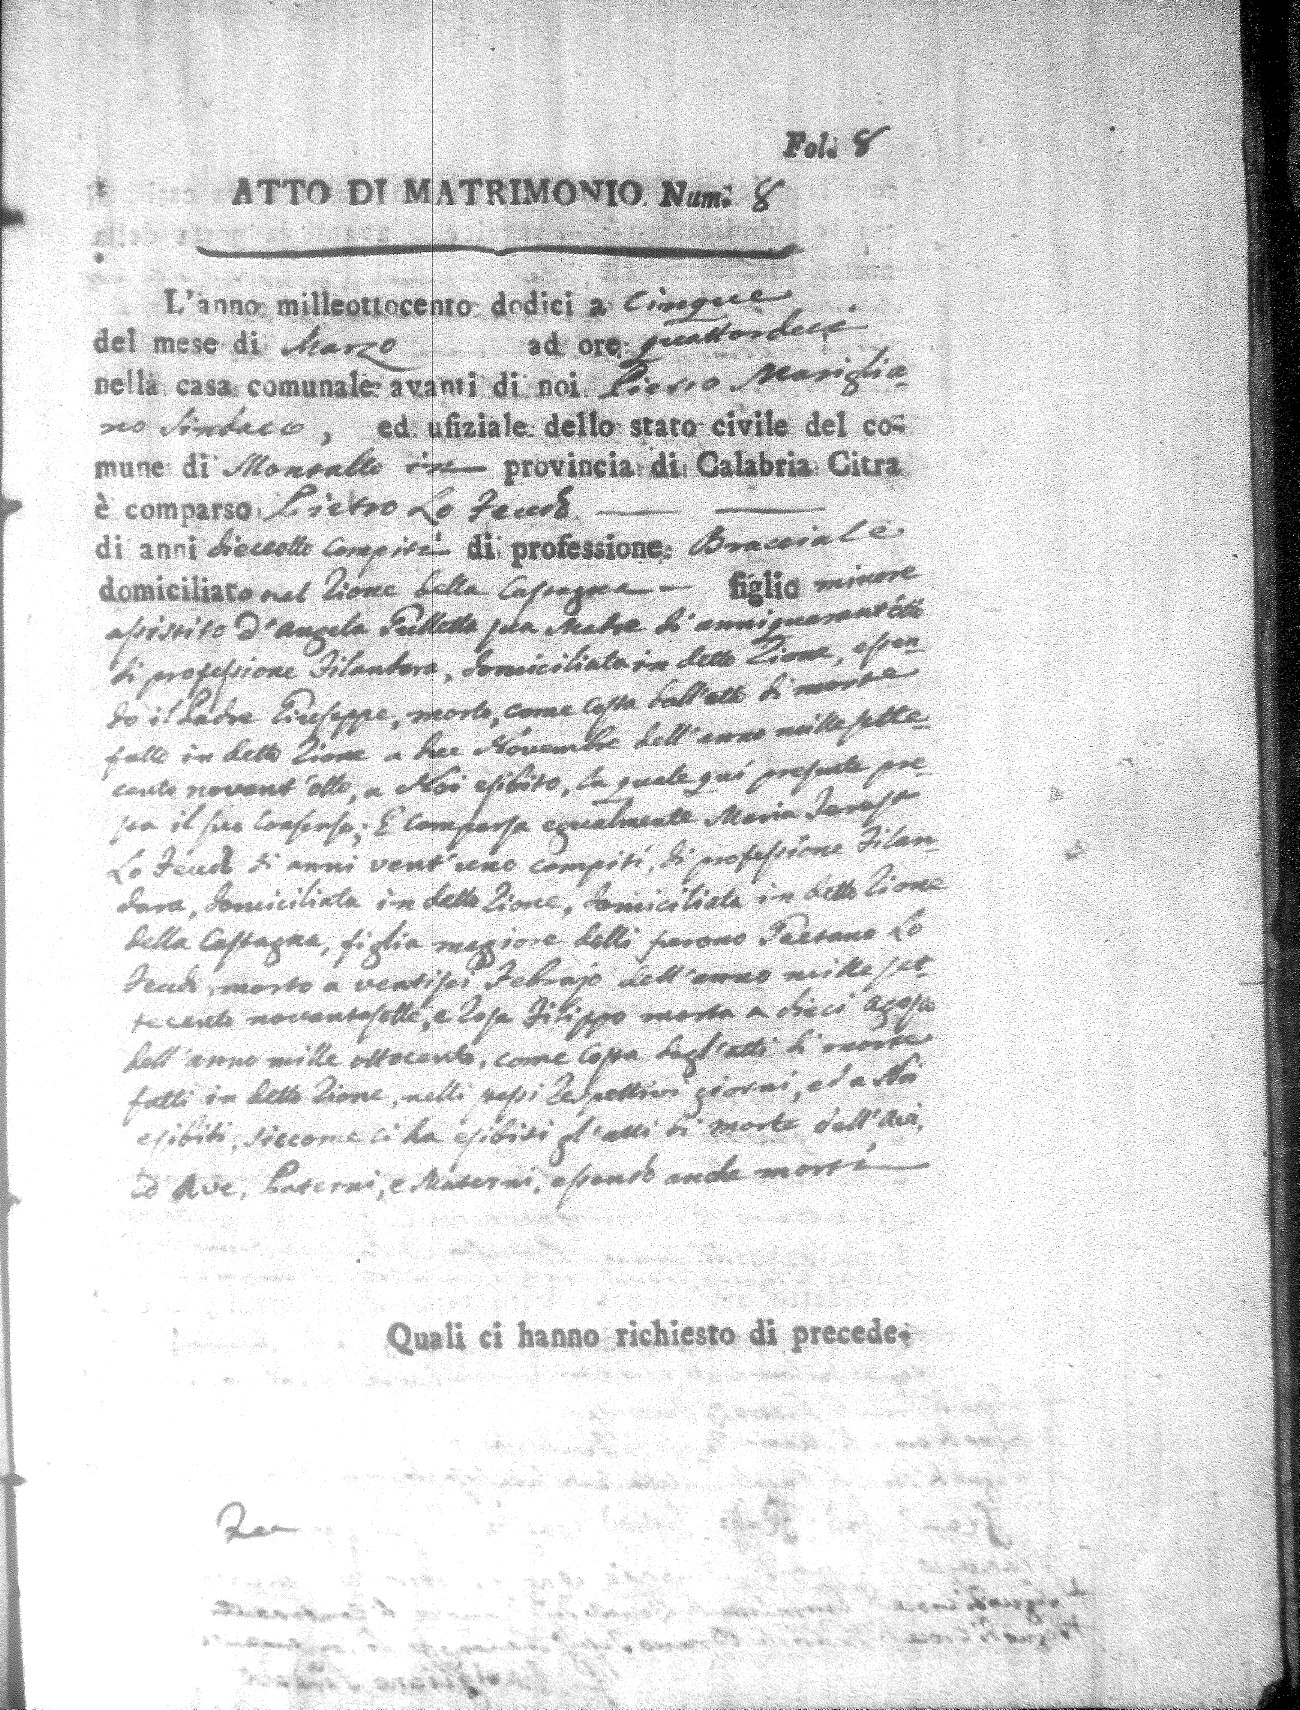 Fol. 8
ATTO DI MATRIMONIO Num. 8
L'anno milleottocento dodici a cinque
del mese di Marzo ad ore quattordeci
nella casa comunale avanti di noi Pietro Mariglia-
no Sindaco, ed ufiziale dello stato civile del co-
mune di Montalto in provincia di Calabria Citra
è comparso Pietro Lo Feudo
di anni dieciotto compiti di professione Bracciale
domiciliato nel Rione della Castagna figlio minore
assistito d'Angela sua Madre di anni quarant'otto
di professione Filandara, domiciliata in detto Rione, essen-
do il Padre Giuseppe, morto, come costa dall'atto di morte
fatto in detto Rione a tre Novembre dell'anno mille sette-
cento novant'otto, a Noi esibito, la quale qui presente pre-
sta il suo consenso; E comparsa egualmente Maria Teresa
Lo Feudo di anni vent'uno compiti, di professione Filan-
dara, domiciliata in detto Rione, domiciliata in detto Rione
della Castagna, figlia maggiore delli furono Gaetano Lo
Feudo, morto a ventisei Febrajo dell'anno mille set-
tecento novantasette, e Rosa Filippo morta a dieci Agosto
dell'anno mille ottocento, come costa dagl'atti di morte
fatti in detto Rione, nelli stessi respettivi giorni, ed a Noi
esibiti, siccome ci ha esibiti gl'atti di morte dell'Avi,
ed Ave, Paterni, e Materni, essendo anche morti
Quali ci hanno richiesto di precede-